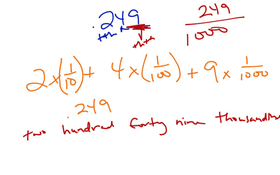 .249 249/1000
2 × (1/10) + 4 × (1/100) + 9 × 1/1000
.249
two hundred fourty nine thousandths